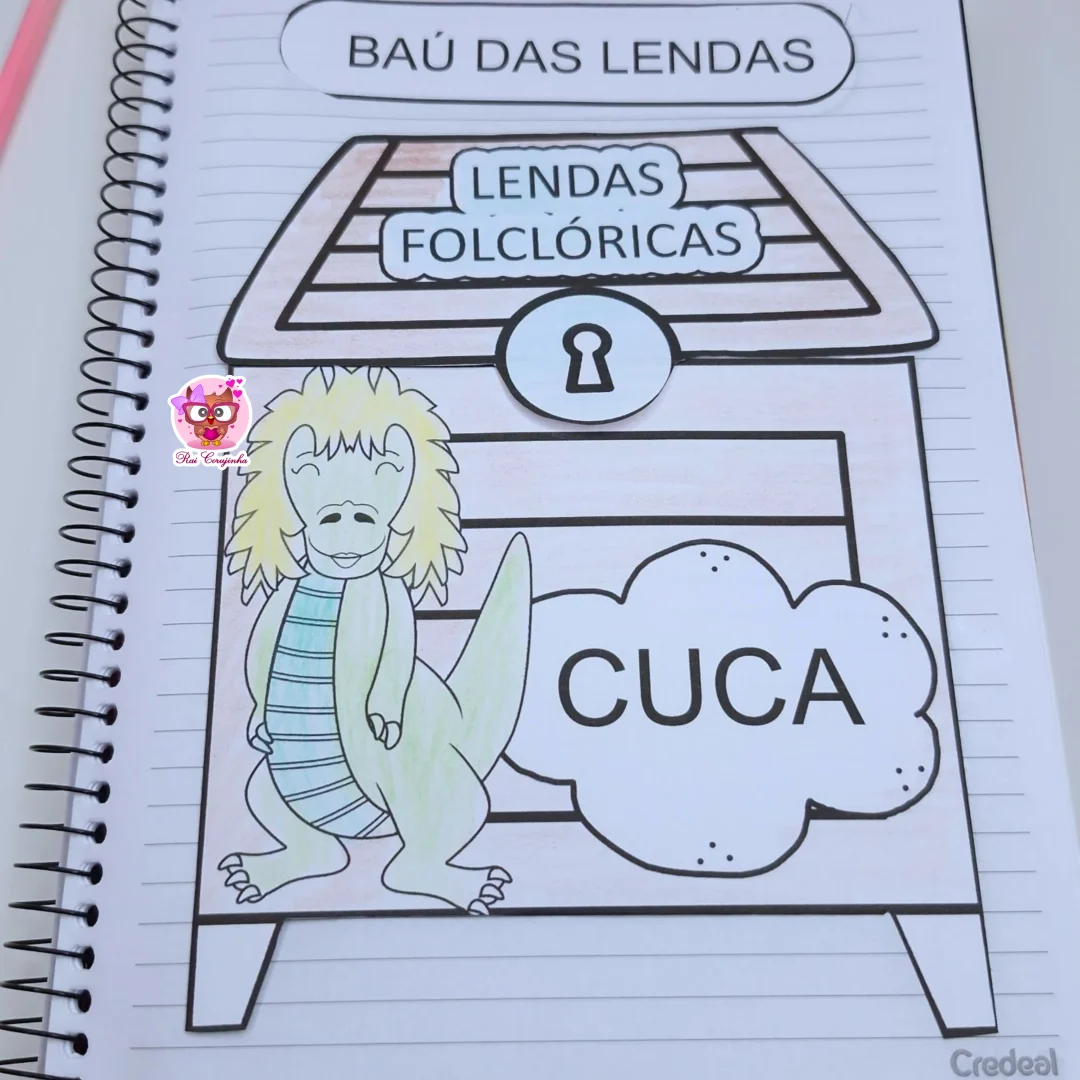 BAÚ DAS LENDAS
LENDAS
FOLCLÓRICAS
Rai Corujinha
CUCA
Credeal